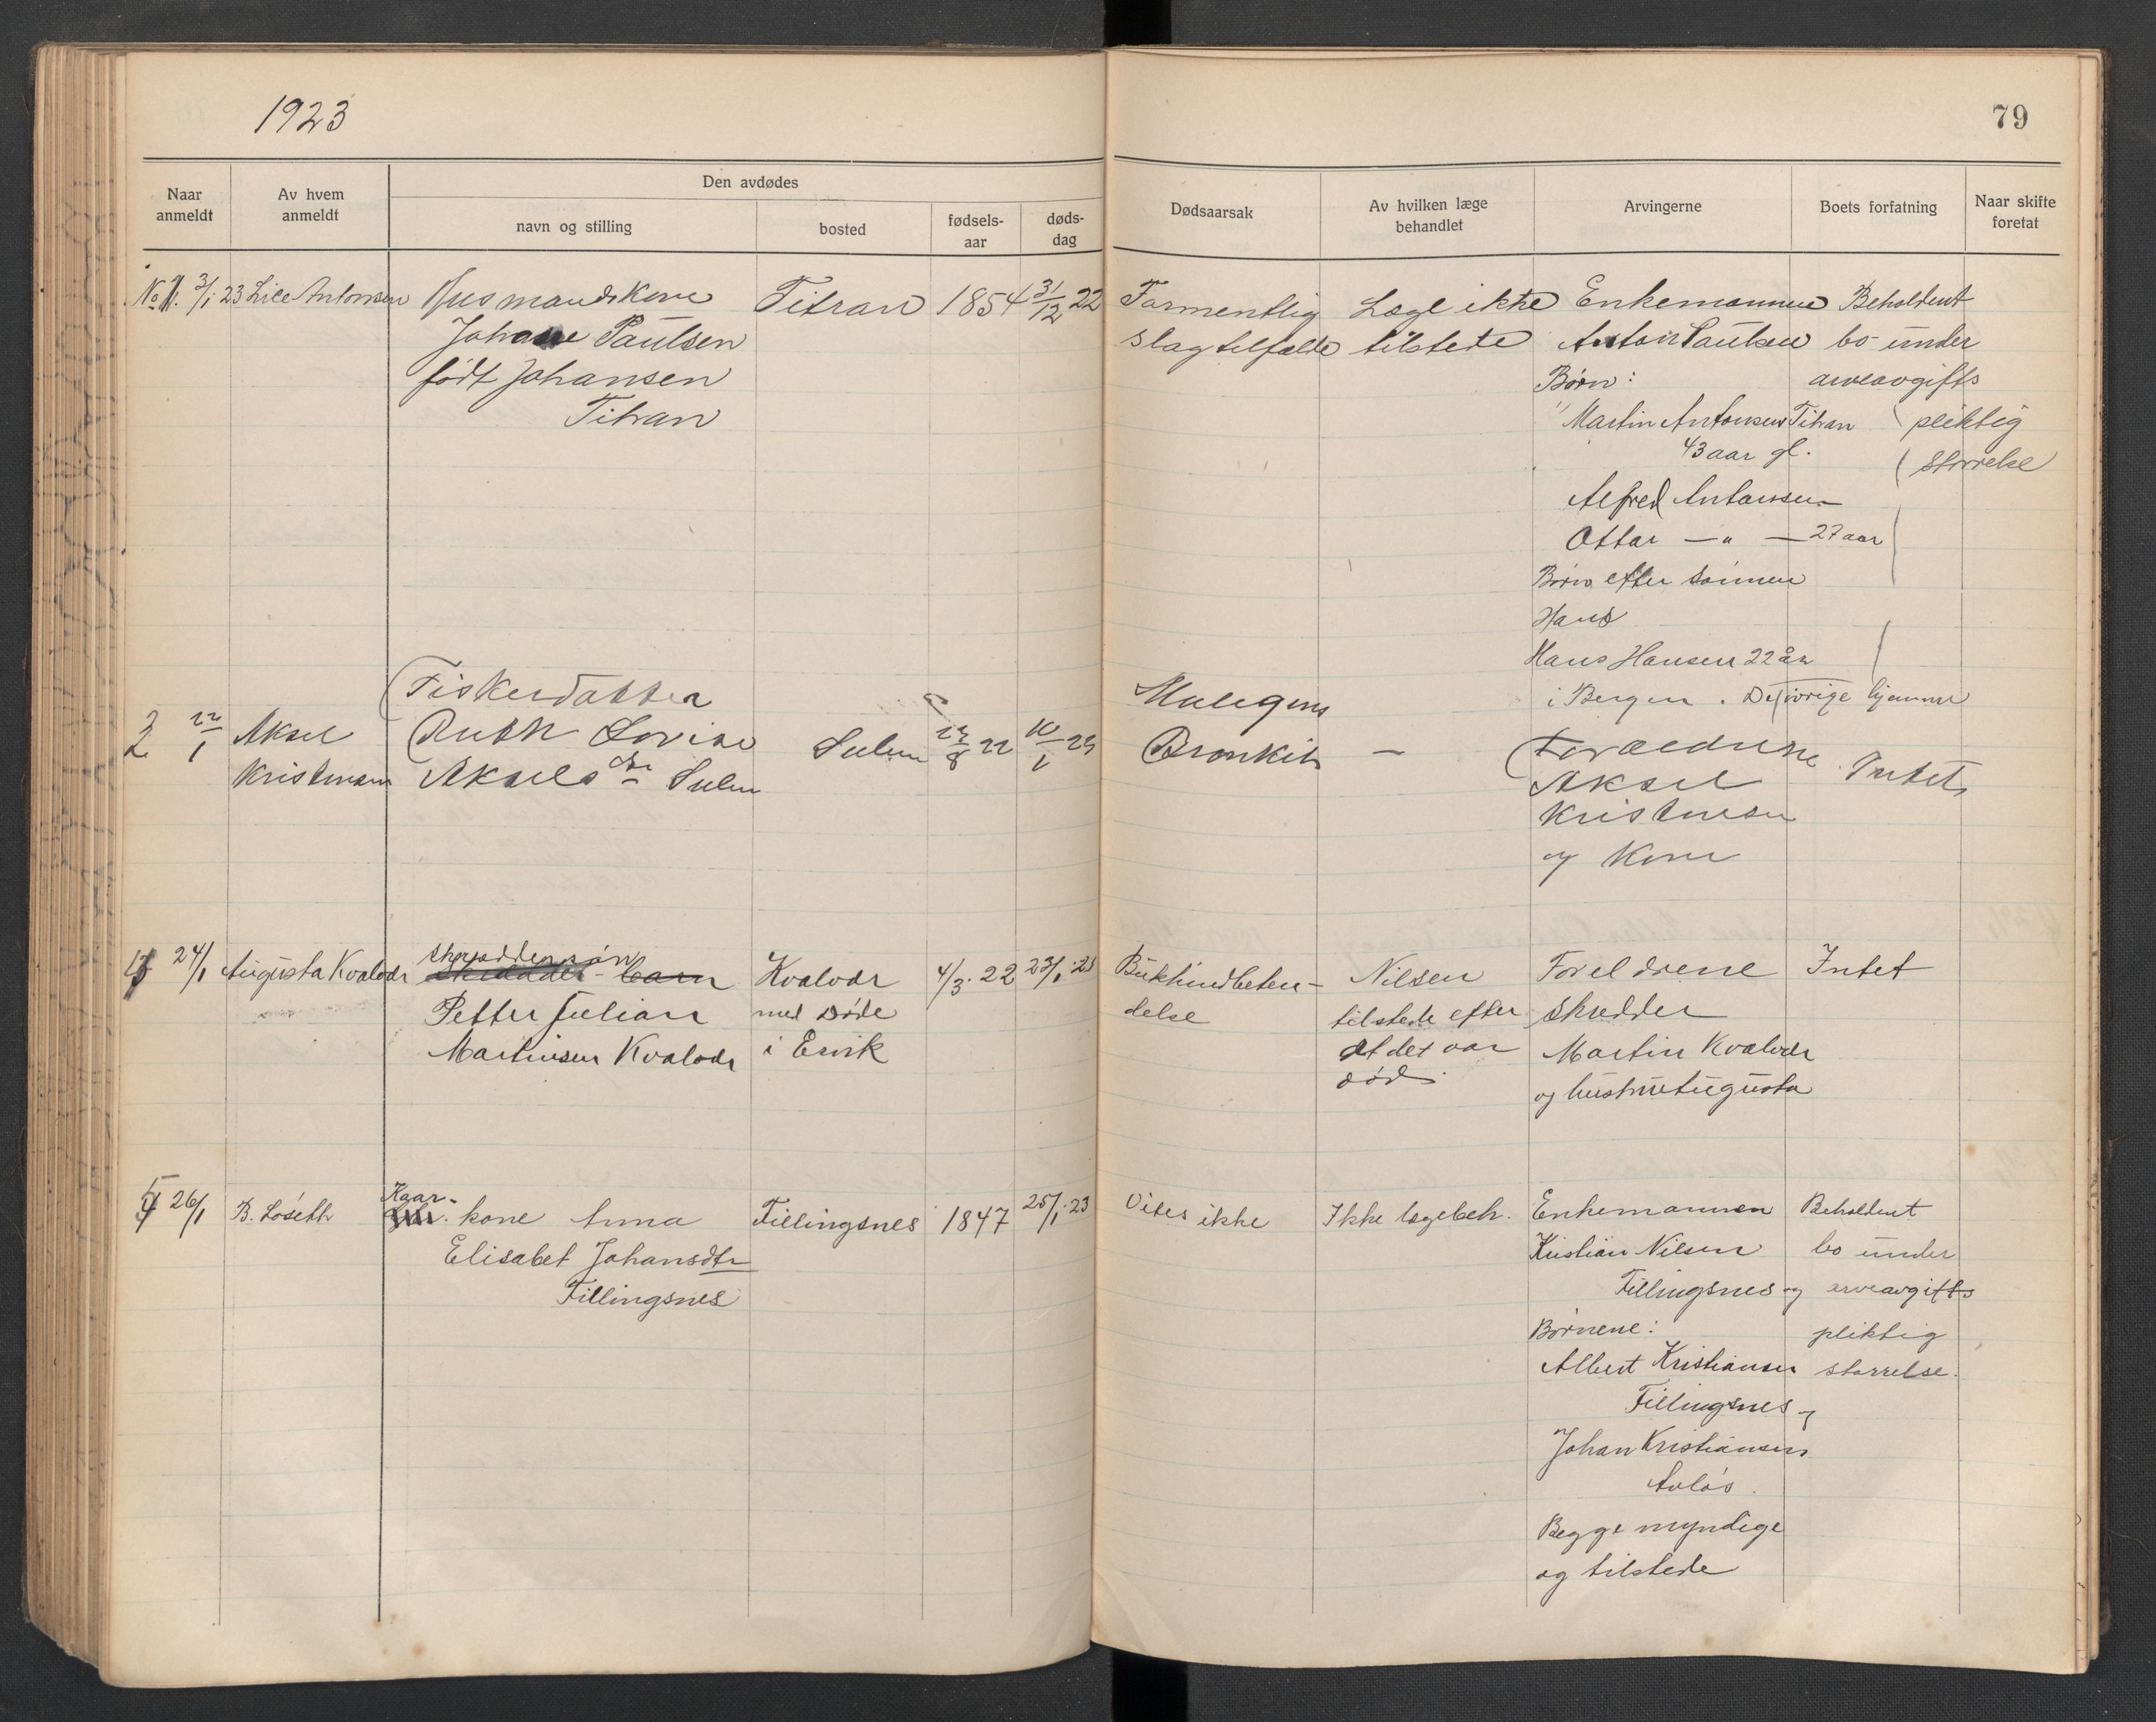 1923
79
Naar anmeldt
Av hvem anmeldt
Den avdødes
navn og stilling
bosted
fødsels-aar
døds-dag
Dødsaarsak
Av hvilken læge behandlet
Arvingerne
Boets forfatning
Naar skifte foretat
No 1. 3/1 23 Antonsen Husmandskone Titran 1854 31/12 22 Formentlig Læge ikke Enkemannen Beholdent
Johane Paulsen slagtilfælde tilstede Anton Paulsen bo under
født Johansen Børn: arveavgifts
Titran Martin Antonsen Titran pliktig
43 aar gl. størrelse
Alfred Antonsen
Ottar — " — 27 aar
Børn efter sønnen
Hans
Hans Hansen 22 år
i Bergen. De øvrige hjemme
Fiskerdatter
2 22/1 Aksel Ruth Lovise Sulen 23/8 22 10/1 23 Bronkit — Forældrene Intet
Kristensen Akselsdtr Sulen Aksel
Kristensen
og Kone
skreddersøn
24/1 Augusta Kvalvær Kvalvær 4/3. 22 23/1.23 Bukhindbeten- Nilsen Foreldrene Intet
Petter Julian med døde delse tilstede efter skredder
Martinsen Kvalvær i Ervik at det var Martin Kvalvær
død. og hustru Augusta
Kaar-
26/1 B. Løseth kone Anna Fillingsnes 1847 25/1.23 Vites ikke Ikke lægebeh. Enkemannen Beholdent
Elisabet Johansdtr Kristian Nilsen bo under
Fillingsnes Fillingsnes og arveavgifts
Børnene: pliktig
Albert Kristiansen størrelse.
Fillingsnes og
Johan Kristiansen
Avløs.
Begge myndige
og tilstede